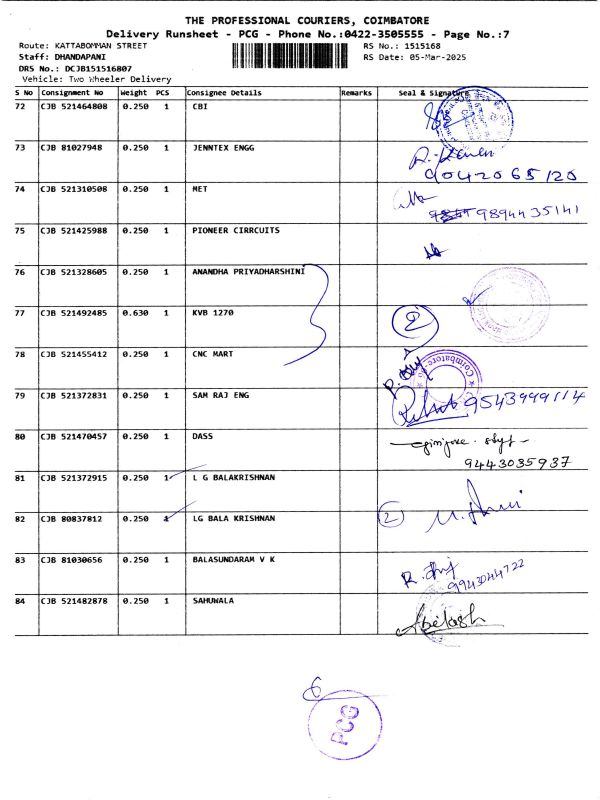 THE PROFESSIONAL COURIERS, COIMBATORE
Delivery Runsheet - PCG - Phone No.:0422-3505555 - Page No.:7
Route: KATTABOMMAN STREET
RS No.: 1515168
Staff: DHANDAPANI
RS Date: 05-Mar-2025
DRS No.: DCJB151516807
Vehicle: Two Wheeler Delivery
S No Consignment No Weight PCS Consignee Details Remarks Seal & Signature
72 CJB 521464808 0.250 1 CBI
73 CJB 81027948 0.250 1 JENNTEX ENGG
9042065120
74 CJB 521310508 0.250 1 MET
9894435141
75 CJB 521425988 0.250 1 PIONEER CIRRCUITS
76 CJB 521328605 0.250 1 ANANDHA PRIYADHARSHINI
77 CJB 521492485 0.630 1 KVB 1270
2
78 CJB 521455412 0.250 1 CNC MART
Coimbatore
79 CJB 521372831 0.250 1 SAM RAJ ENG
9543999114
80 CJB 521470457 0.250 1 DASS
9443035937
81 CJB 521372915 0.250 1 L G BALAKRISHNAN
82 CJB 80837812 0.250 1 LG BALA KRISHNAN
2
83 CJB 81030656 0.250 1 BALASUNDARAM V K
9943044722
84 CJB 521482878 0.250 1 SAHUWALA
Abilash
6
PCG